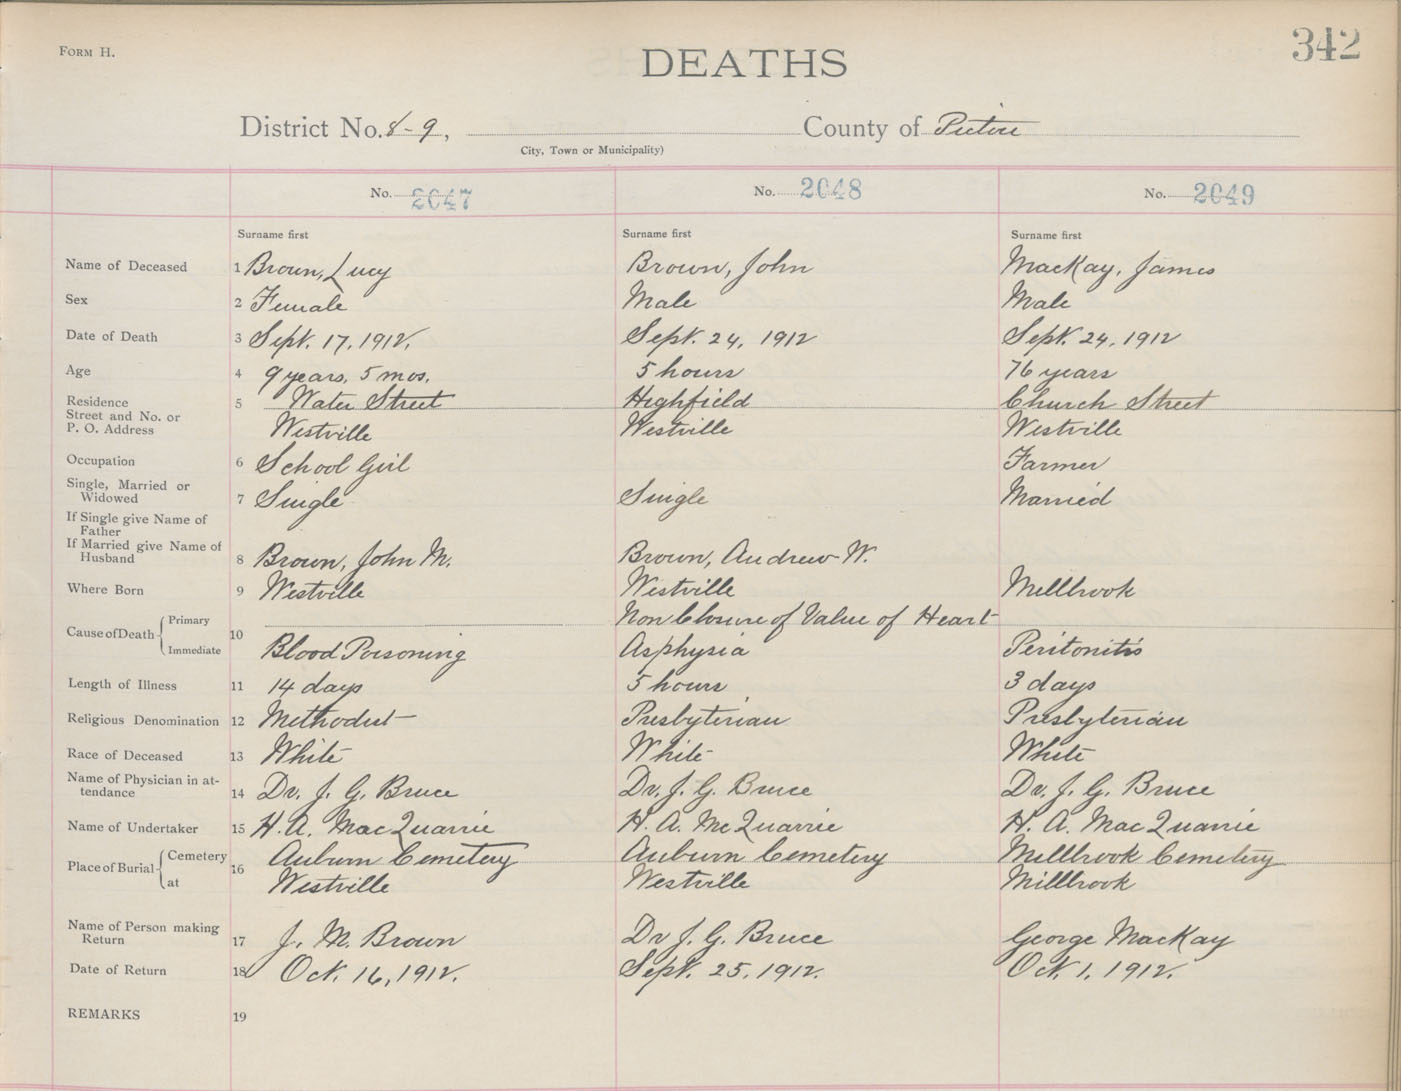 FORM H.
DEATHS
342
District No. 8-9, County of Pictou
City, Town or Municipality)
No. 2047 No. 2048 No. 2049
Surname first Surname first Surname first
Name of Deceased 1 Brown, Lucy Brown, John MacKay, James
Sex 2 Female Male Male
Date of Death 3 Sept. 17, 1912. Sept. 24, 1912 Sept. 24, 1912
Age 4 9 years, 5 mos. 5 hours 76 years
Residence 5 Water Street Highfield Church Street
Street and No. or
P. O. Address Westville Westville Westville
Occupation 6 School Girl Farmer
Single, Married or
Widowed 7 Single Single Married
If Single give Name of
Father
If Married give Name of
Husband 8 Brown, John M. Brown, Andrew W.
Where Born 9 Westville Westville Millbrook
Cause of Death Primary 10 Non Closure of Value of Heart
Immediate Blood Poisoning Asphysia Peritonitis
Length of Illness 11 14 days 5 hours 3 days
Religious Denomination 12 Methodist Presbyterian Presbyterian
Race of Deceased 13 White White White
Name of Physician in at-
tendance 14 Dr. J. G. Bruce Dr. J. G. Bruce Dr. J. G. Bruce
Name of Undertaker 15 H. A. MacQuarrie H. A. McQuarrie H. A. MacQuarrie
Place of Burial Cemetery 16 Auburn Cemetery Auburn Cemetery Millbrook Cemetery
at Westville Westville Millbrook
Name of Person making
Return 17 J. M. Brown Dr J. G. Bruce George MacKay
Date of Return 18 Oct. 16, 1912. Sept. 25, 1912. Oct. 1, 1912.
REMARKS 19